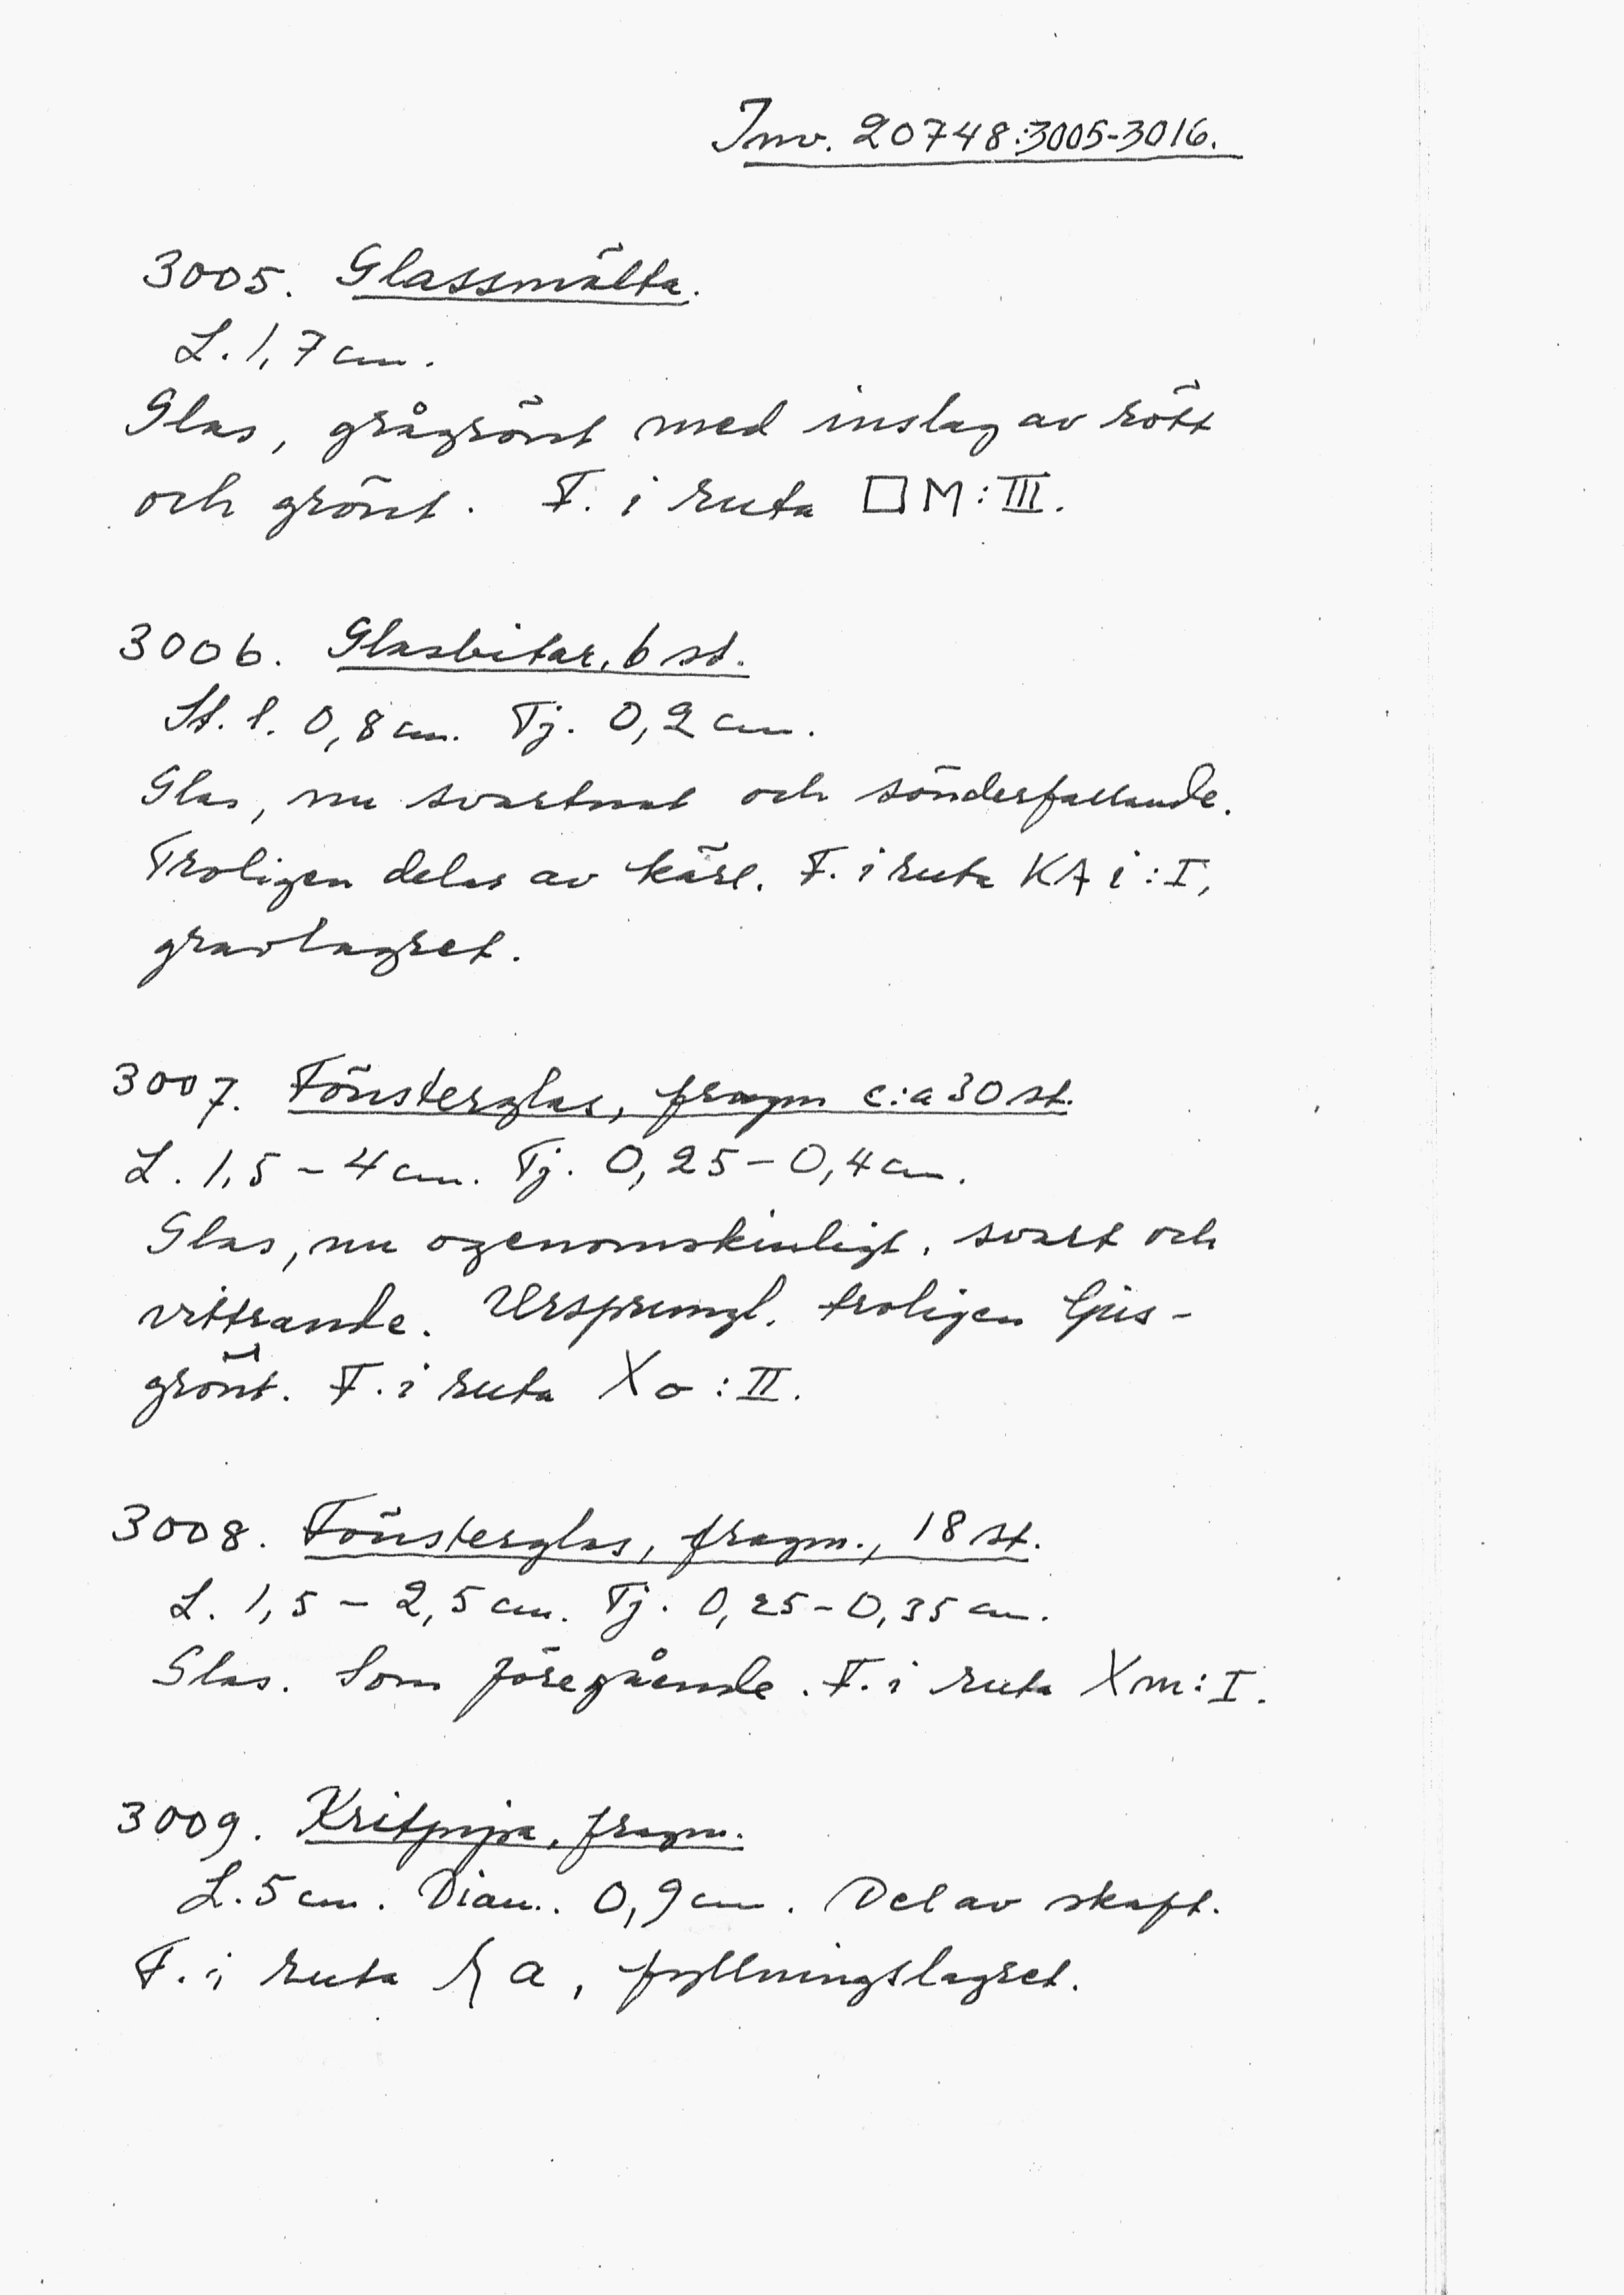 Inv. 20748:3005-3016.
3005. Glassmälta.
L. 1,7 cm.
Glas, grågrönt med inslag av rött
och grönt. F. i ruta □ M:III.
3006. Glasbitar, 6 st.
St. l. 0,8 cm. Tj. 0,2 cm.
Glas, nu svartnat och sönderfallande.
Troligen delar av kärl. F. i ruta KA i:I,
gravlagret.
3007. Fönsterglas, fragm c:a 30 st.
L. 1,5 – 4 cm. Tj. 0,25 – 0,4 cm.
Glas, nu ogenomskinligt, svart och
vittrande. Ursprungl. troligen ljus-
grönt. F. i ruta X o:II.
3008. Fönsterglas, fragm., 18 st.
L. 1,5 – 2,5 cm. Tj. 0,25 – 0,35 cm.
Glas. Som föregående. F. i ruta X m:I.
3009. Kritpipa, fragm.
L. 5 cm. Diam. 0,9 cm. Del av skaft.
F. i ruta a, fyllningslagret.